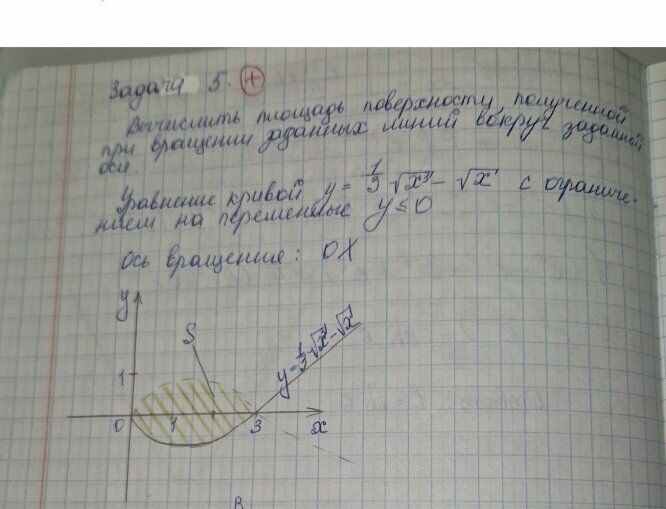 Задача 5. +
Вычислить площадь поверхности, полученной
при вращении заданных линий вокруг заданной
оси.
Уравнение кривой y = 1/3 √x³ - √x с ограниче-
нием на переменные y ≤ 0
ось вращения: OX
y
S
y = 1/3 √x³ - √x
1
0 1 3 x
B